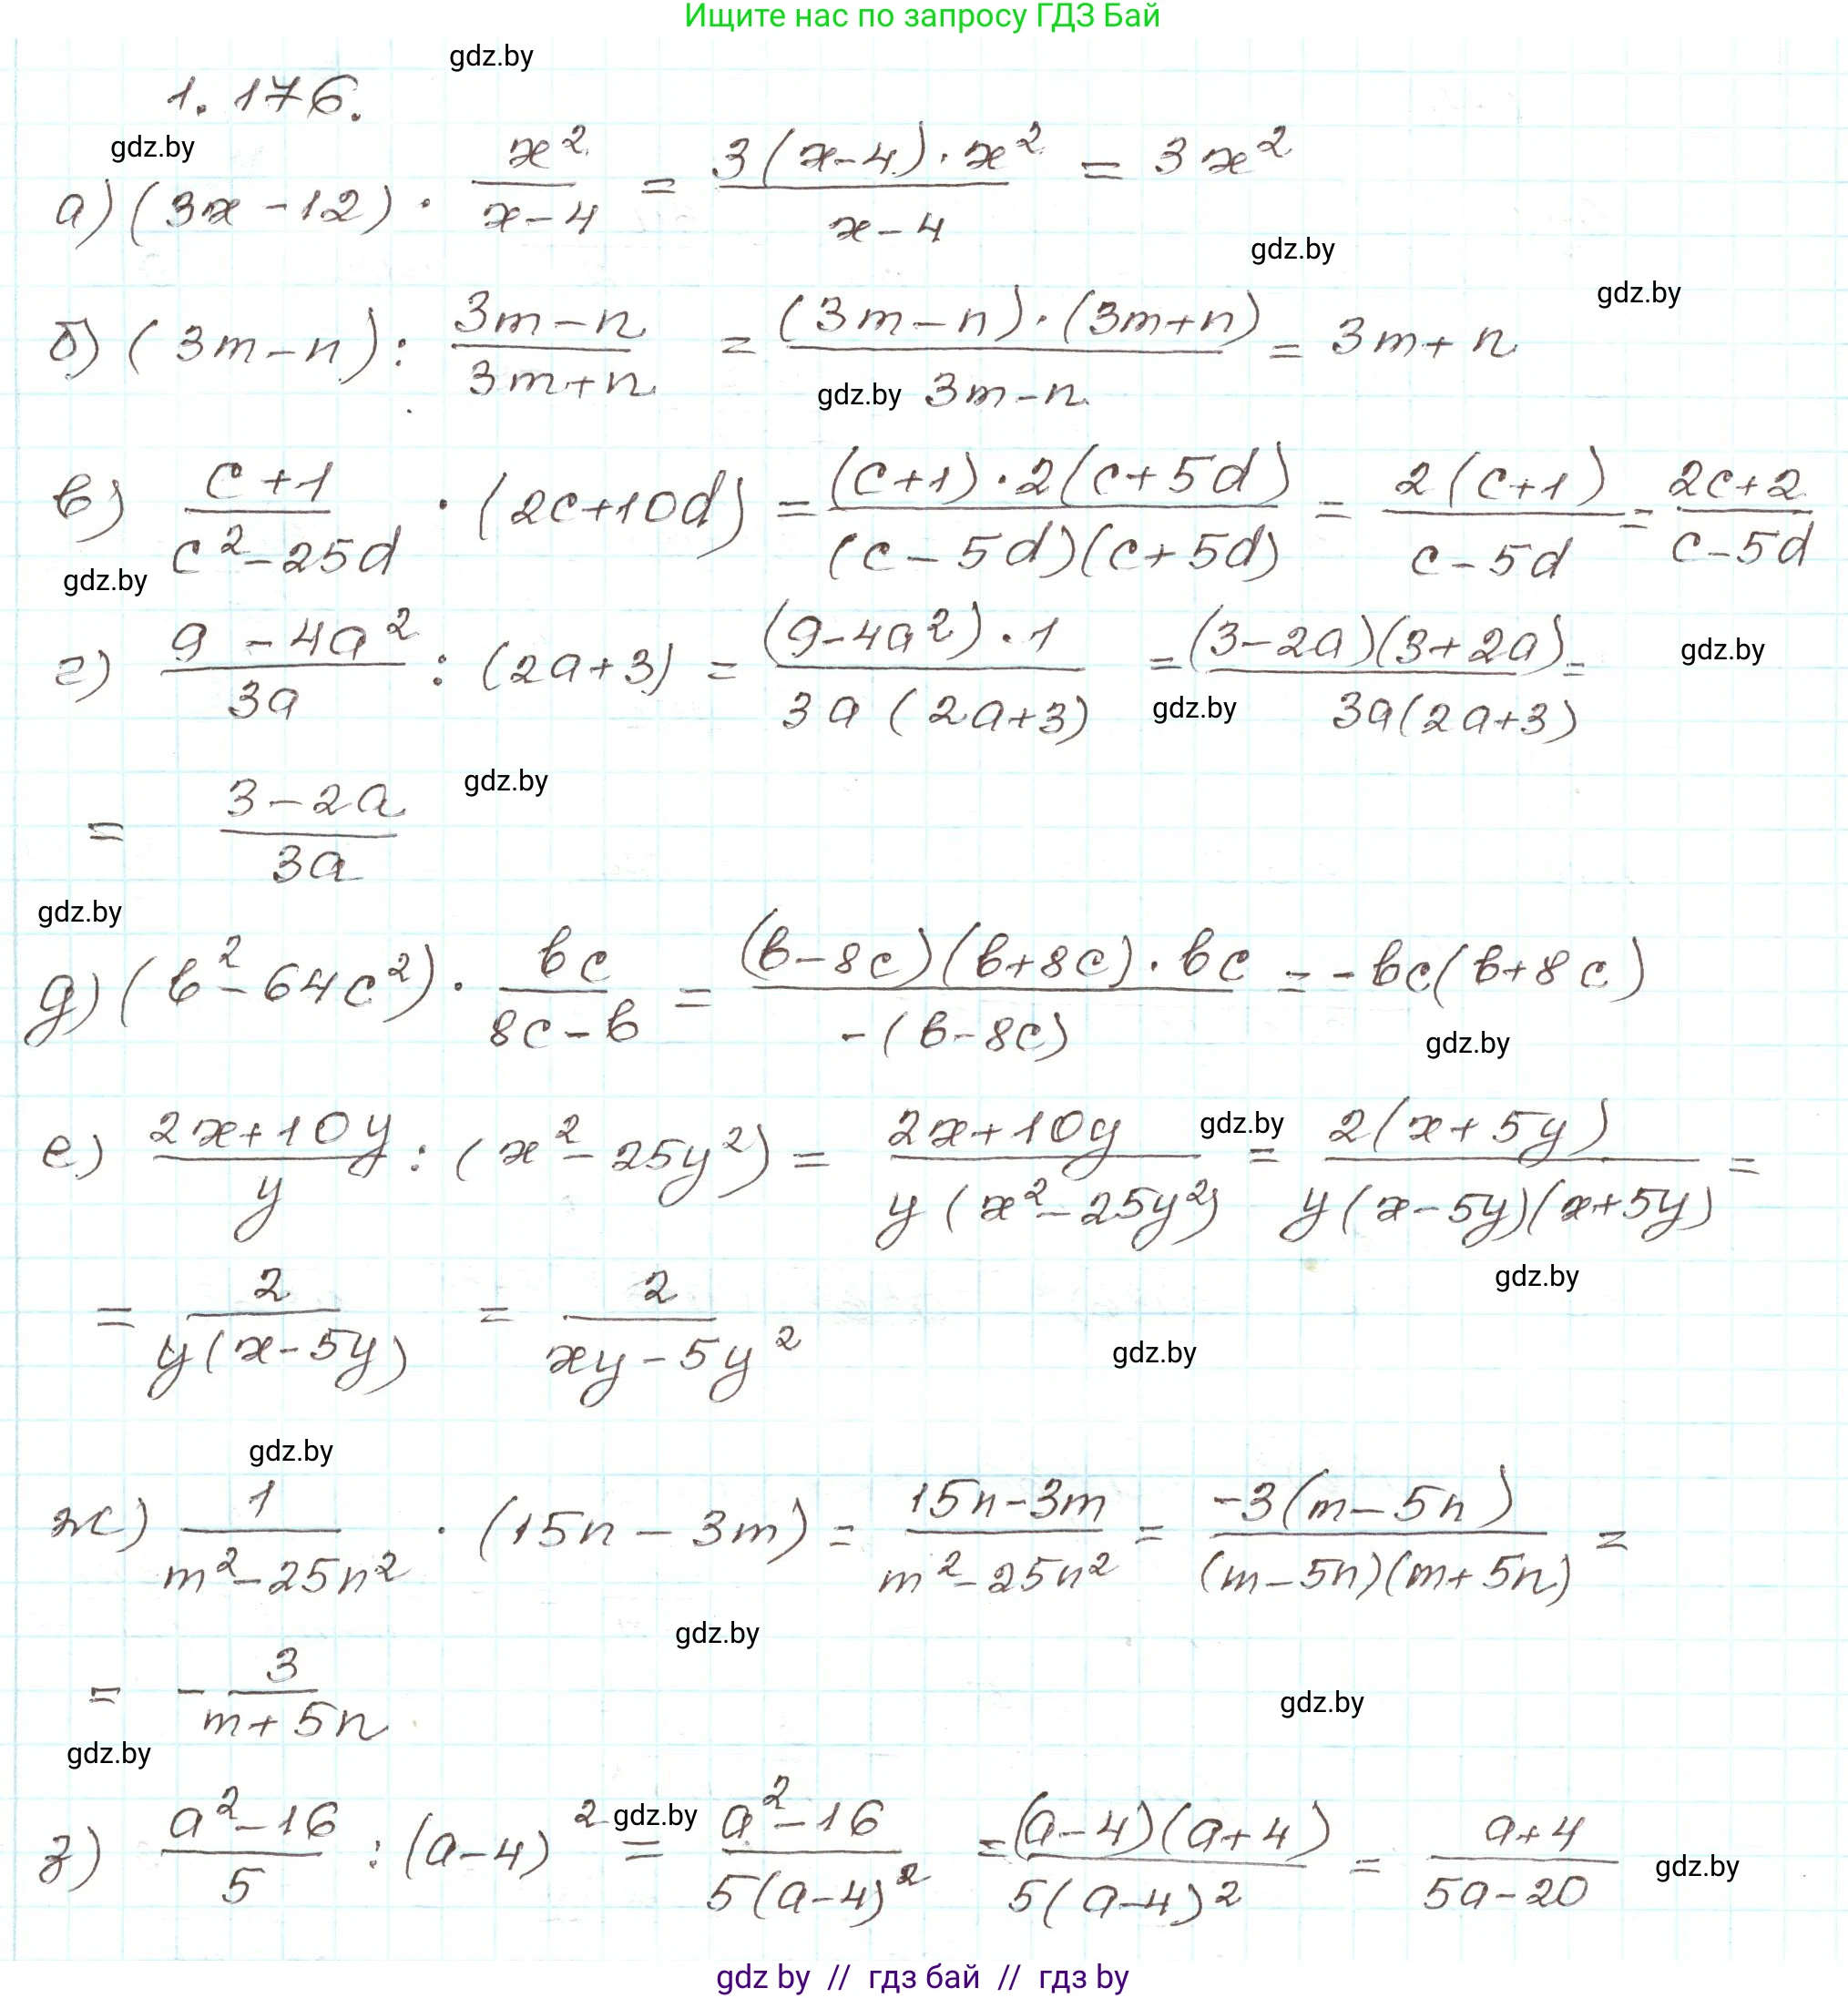 Ищите нас по запросу ГДЗ Бай
gdz.by
1.176.
gdz.by
а) (3x - 12) · \frac{x^2}{x-4} = \frac{3(x-4)·x^2}{x-4} = 3x^2
gdz.by
gdz.by
б) (3m - n) : \frac{3m-n}{3m+n} = \frac{(3m-n)·(3m+n)}{3m-n} = 3m+n
gdz.by
в) \frac{c+1}{c^2-25d} · (2c+10d) = \frac{(c+1)·2(c+5d)}{(c-5d)(c+5d)} = \frac{2(c+1)}{c-5d} = \frac{2c+2}{c-5d}
gdz.by
г) \frac{9-4a^2}{3a} : (2a+3) = \frac{(9-4a^2)·1}{3a(2a+3)} = \frac{(3-2a)(3+2a)}{3a(2a+3)} =
gdz.by
gdz.by
= \frac{3-2a}{3a}
gdz.by
gdz.by
д) (b^2-64c^2) · \frac{bc}{8c-b} = \frac{(b-8c)(b+8c)·bc}{-(b-8c)} = -bc(b+8c)
gdz.by
е) \frac{2x+10y}{y} : (x^2-25y^2) = \frac{2x+10y}{y(x^2-25y^2)} = \frac{2(x+5y)}{y(x-5y)(x+5y)} =
gdz.by
gdz.by
= \frac{2}{y(x-5y)} = \frac{2}{xy-5y^2}
gdz.by
gdz.by
ж) \frac{1}{m^2-25n^2} · (15n-3m) = \frac{15n-3m}{m^2-25n^2} = \frac{-3(m-5n)}{(m-5n)(m+5n)} =
gdz.by
= -\frac{3}{m+5n}
gdz.by
gdz.by
з) \frac{a^2-16}{5} : (a-4)^2 = \frac{a^2-16}{5(a-4)^2} = \frac{(a-4)(a+4)}{5(a-4)^2} = \frac{a+4}{5a-20}
gdz.by
gdz.by
gdz by // гдз бай // гдз by